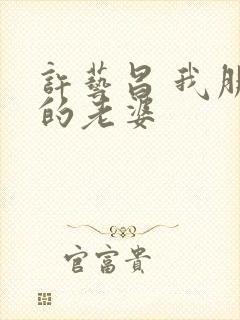 許藝昌我朋
的老婆
官富貴